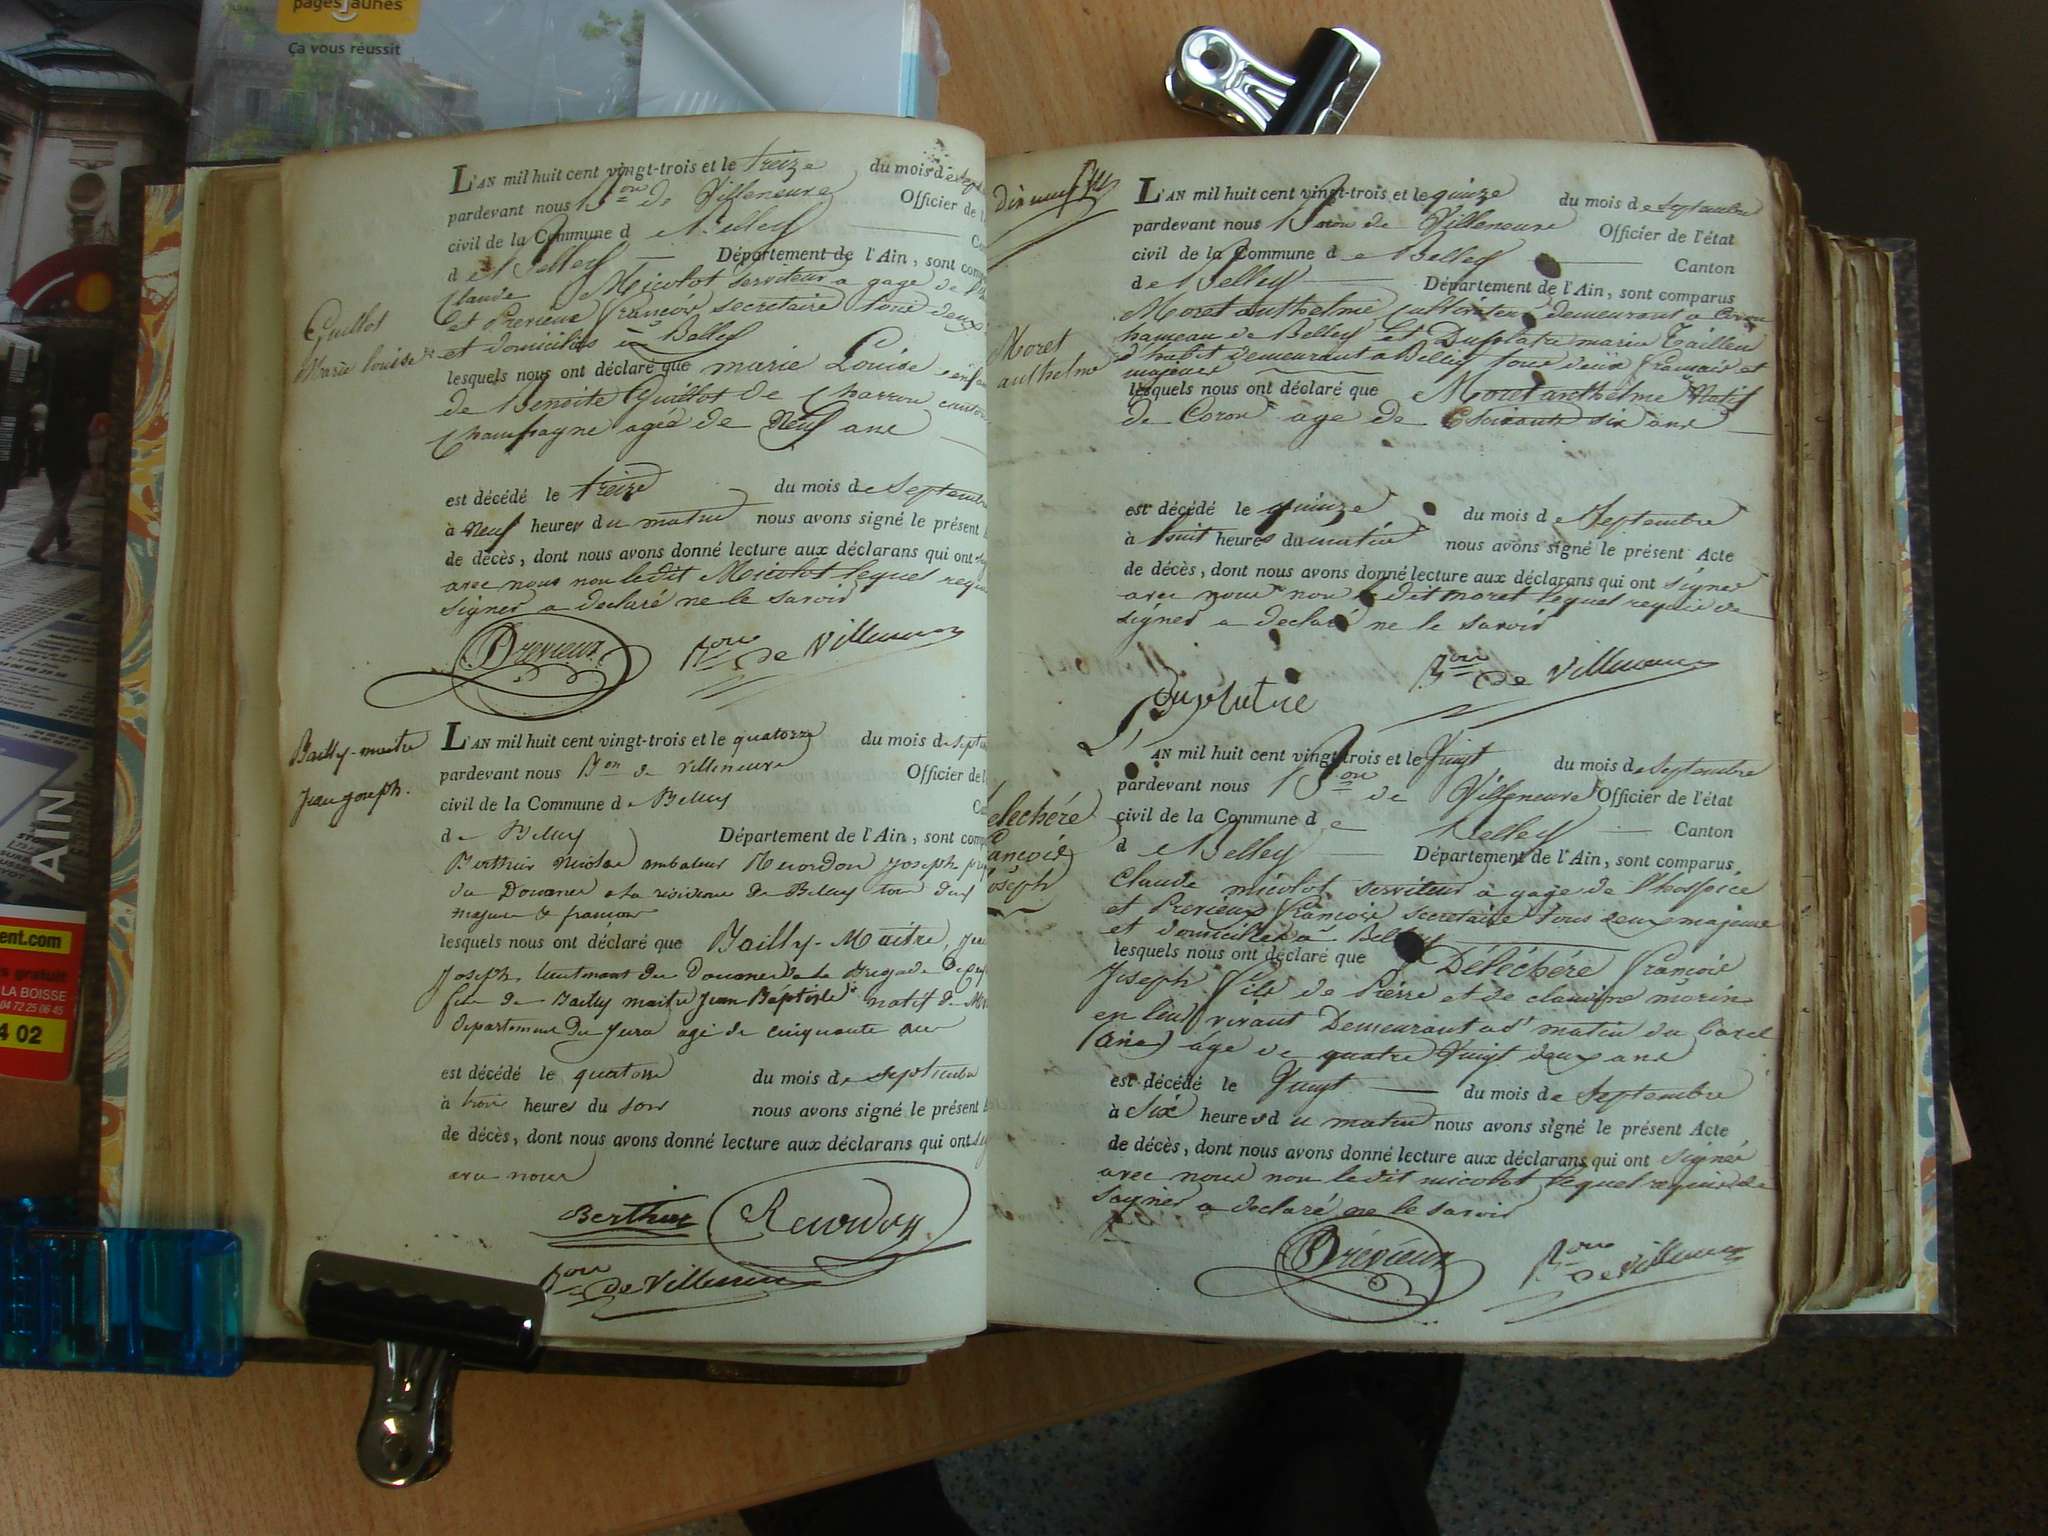 pages jaunes
Ça vous réussit
AIN
ent.com
s gratuit
LA BOISSE
04 72 25 06 45
4 02
L'AN mil huit cent vingt-trois et le treize du mois de
pardevant nous Bon de Villeneuve Officier de l
civil de la Commune de Belley
de Belley Département de l'Ain, sont comp
Claude Micolot serviteur a gage de
et Previeux françois secretaire tous deux
et domiciliés à Belley
Guillot
Marie Louise
lesquels nous ont déclaré que marie Louise enfan
de Benoite Guillot de Charron canton
Champagne agée de Neuf ans
est décédé le treize du mois de Septembre
à Neuf heures du matin nous avons signé le présent
de décès, dont nous avons donné lecture aux déclarans qui ont
avec nous non ledit Micolot lequel requi
signer a declaré ne le savoir
Previeux Bon de Villeneuve
Bailly-maitre
Jean joseph.
L'AN mil huit cent vingt-trois et le quatorze du mois de septem
pardevant nous Bon de Villeneuve Officier de l
civil de la Commune de Belley
de Belley Département de l'Ain, sont comp
Berthier Nicolas Recordon Joseph
des Douanes a la residence de Belley tous deux
majeurs & francais
lesquels nous ont déclaré que Bailly-Maitre, Jean
Joseph, lieutenant des Douanes de la Brigade
fils de Bailly maitre Jean Baptiste natif de
departement du Jura agé de cinquante ans
est décédé le quatorze du mois de septembre
à trois heures du soir nous avons signé le présent
de décès, dont nous avons donné lecture aux déclarans qui ont
avec nous
Berthier Recordon
Bon de Villeneuve
dix neuf
L'AN mil huit cent vingt-trois et le quinze du mois de Septembre
pardevant nous Baron de Villeneuve Officier de l'état
civil de la Commune de Belley Canton
de Belley Département de l'Ain, sont comparus
Moret anthelme cultivateur demeurant a Coron
hameau de Belley Et Duplatre marin Tailleur
d'habit demeurant a Belley tous deux français et
majeurs
Moret
anthelme
lesquels nous ont déclaré que Moret anthelme Natif
de Coron agé de Soixante six ans
est décédé le quinze du mois de Septembre
à huit heures du matin nous avons signé le présent Acte
de décès, dont nous avons donné lecture aux déclarans qui ont signer
avec nous non le dit moret lequel requis de
signer a declaré ne le savoir
Bon de Villeneuve
Duplatre
L'AN mil huit cent vingt-trois et le Vingt du mois de Septembre
pardevant nous Bon de Villeneuve Officier de l'état
civil de la Commune de Belley Canton
de Belley Département de l'Ain, sont comparus
elechéré
ançois
oseph
Claude micolot serviteur à gage de l'hospice
et Previeux françois secretaire tous deux majeurs
et domiciliés à Belley
lesquels nous ont déclaré que Déléchéré François
Joseph fils de Pierre et de claudine morin
en leur vivant Demeurant a St martin du
(Ain) agé de quatre Vingt deux ans
est décédé le Vingt du mois de Septembre
à Six heures du matin nous avons signé le présent Acte
de décès, dont nous avons donné lecture aux déclarans qui ont signé
avec nous non ledit micolot lequel requis de
signer a declaré ne le savoir
Prévieux Bon de Villeneuve